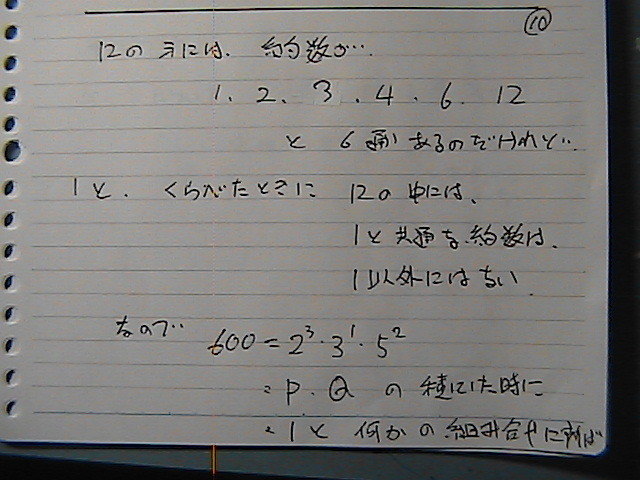 ⑩
12の方には、約数が…
1、2、3、4、6、12
と 6通りあるのだけれど…
1と、くらべたときに 12の中には、
1と共通な約数は、
1以外にはない
なので… 600 = 2³・3¹・5²
= P・Q の積にした時に
= 1と 何かの組み合わせにすれば